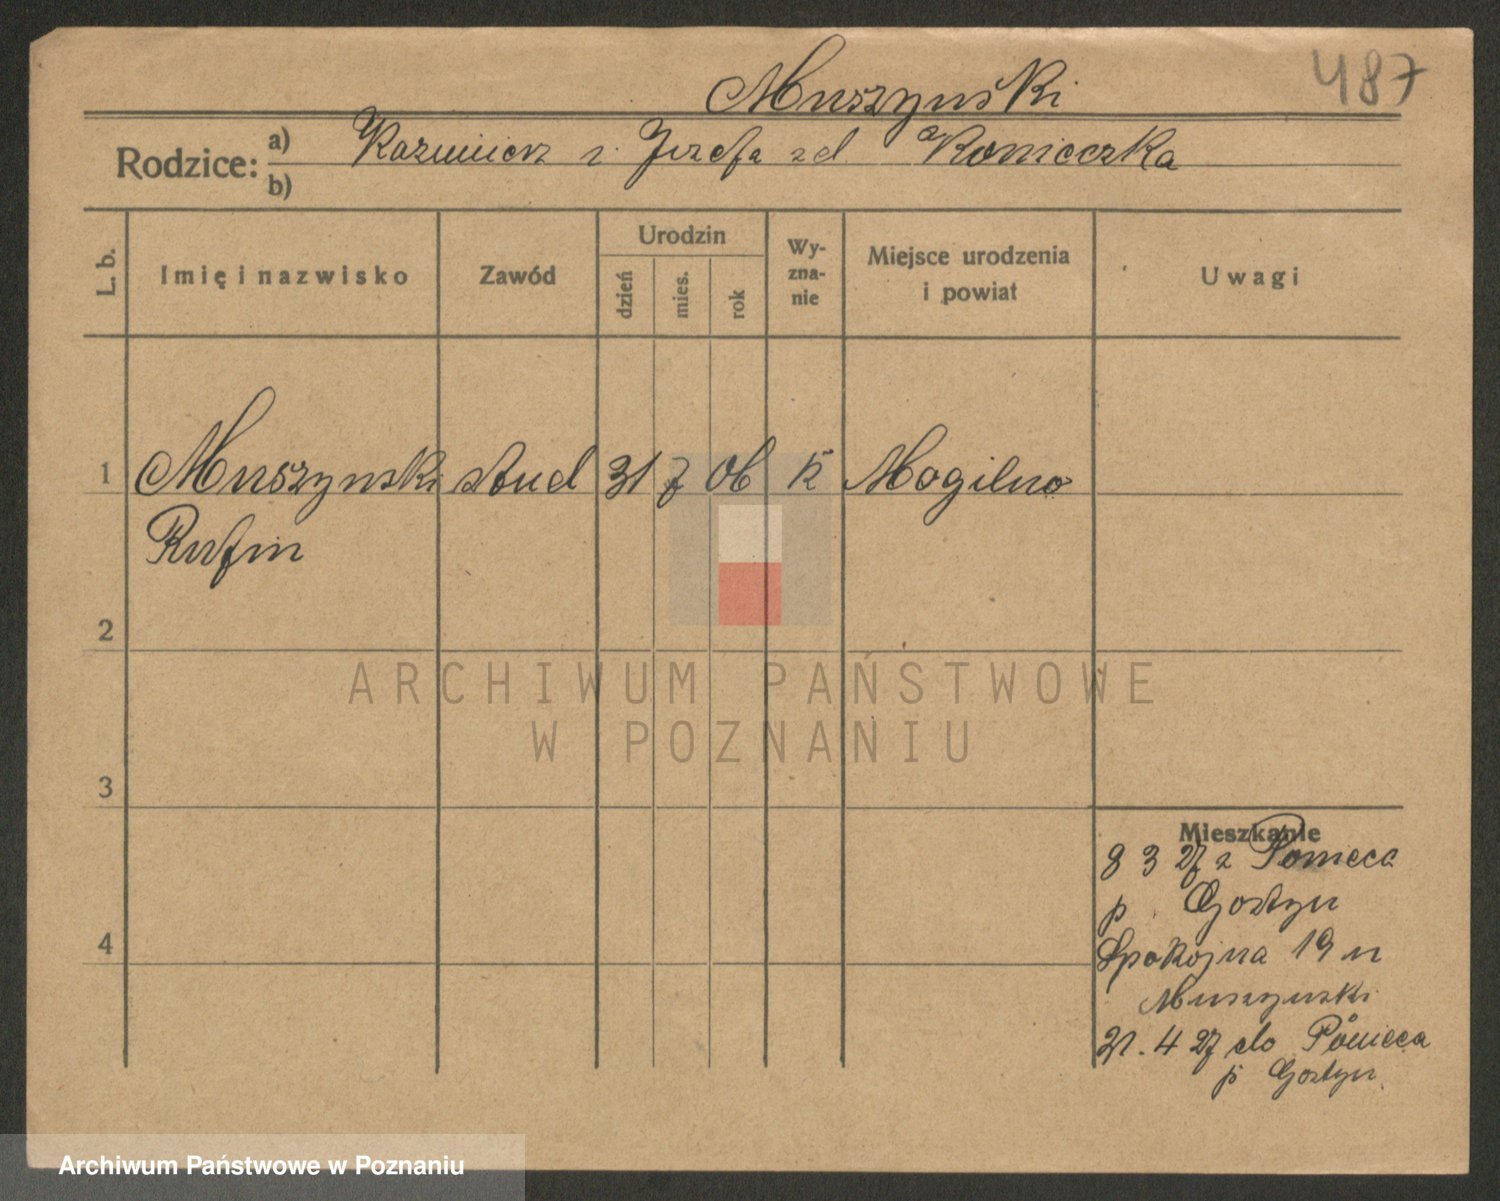 487
Muszyński
Rodzice: a) Kazimierz i Jozefa zd Konieczka
b)
L. b. Imię i nazwisko Zawód Urodzin dzień mies. rok Wyznanie Miejsce urodzenia i powiat Uwagi
1 Muszynski stud 31 7 06 k Mogilno
Rufin
2
3
4
Mieszkanie
8 3 27 z Ponieca
p Gostyn
Spokojna 19 u
Muszynski
21. 4 27 do Ponieca
p Gostyn
ARCHIWUM PAŃSTWOWE
W POZNANIU
Archiwum Państwowe w Poznaniu